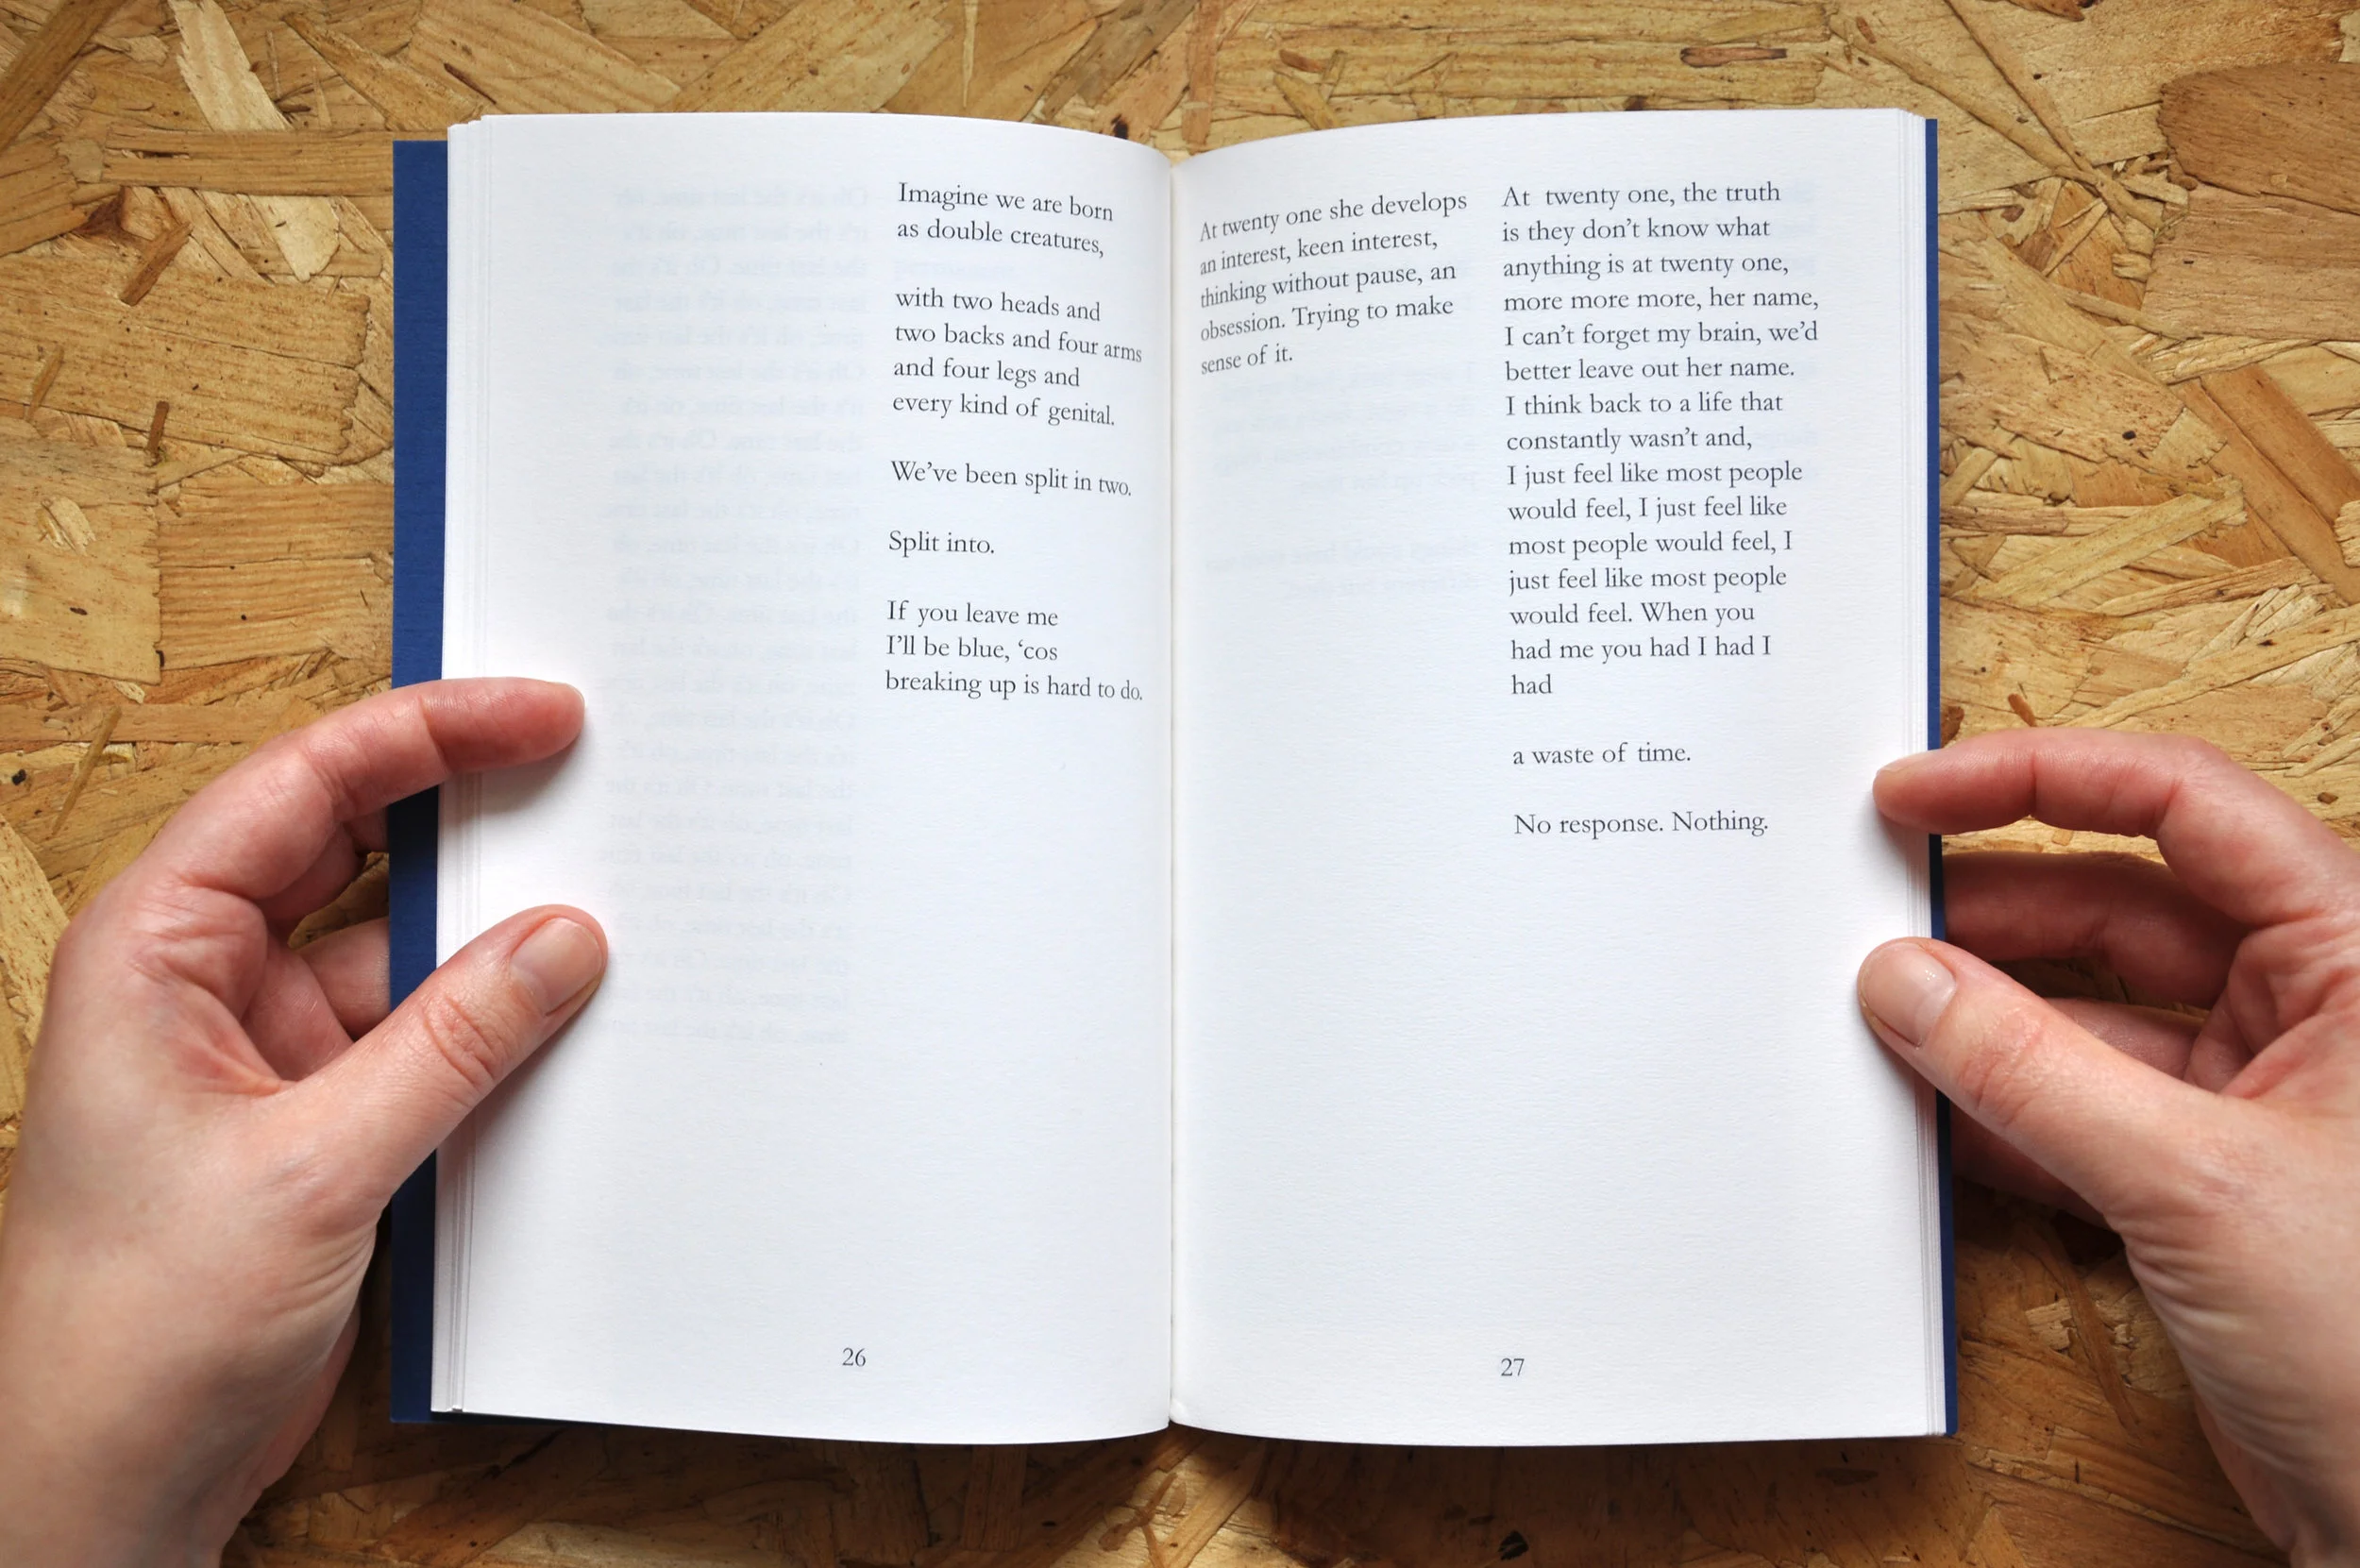 Imagine we are born
as double creatures,
with two heads and
two backs and four arms
and four legs and
every kind of genital.
We’ve been split in two.
Split into.
If you leave me
I’ll be blue, ‘cos
breaking up is hard to do.
26
At twenty one she develops
an interest, keen interest,
thinking without pause, an
obsession. Trying to make
sense of it.
At twenty one, the truth
is they don’t know what
anything is at twenty one,
more more more, her name,
I can’t forget my brain, we’d
better leave out her name.
I think back to a life that
constantly wasn’t and,
I just feel like most people
would feel, I just feel like
most people would feel, I
just feel like most people
would feel. When you
had me you had I had I
had
a waste of time.
No response. Nothing.
27